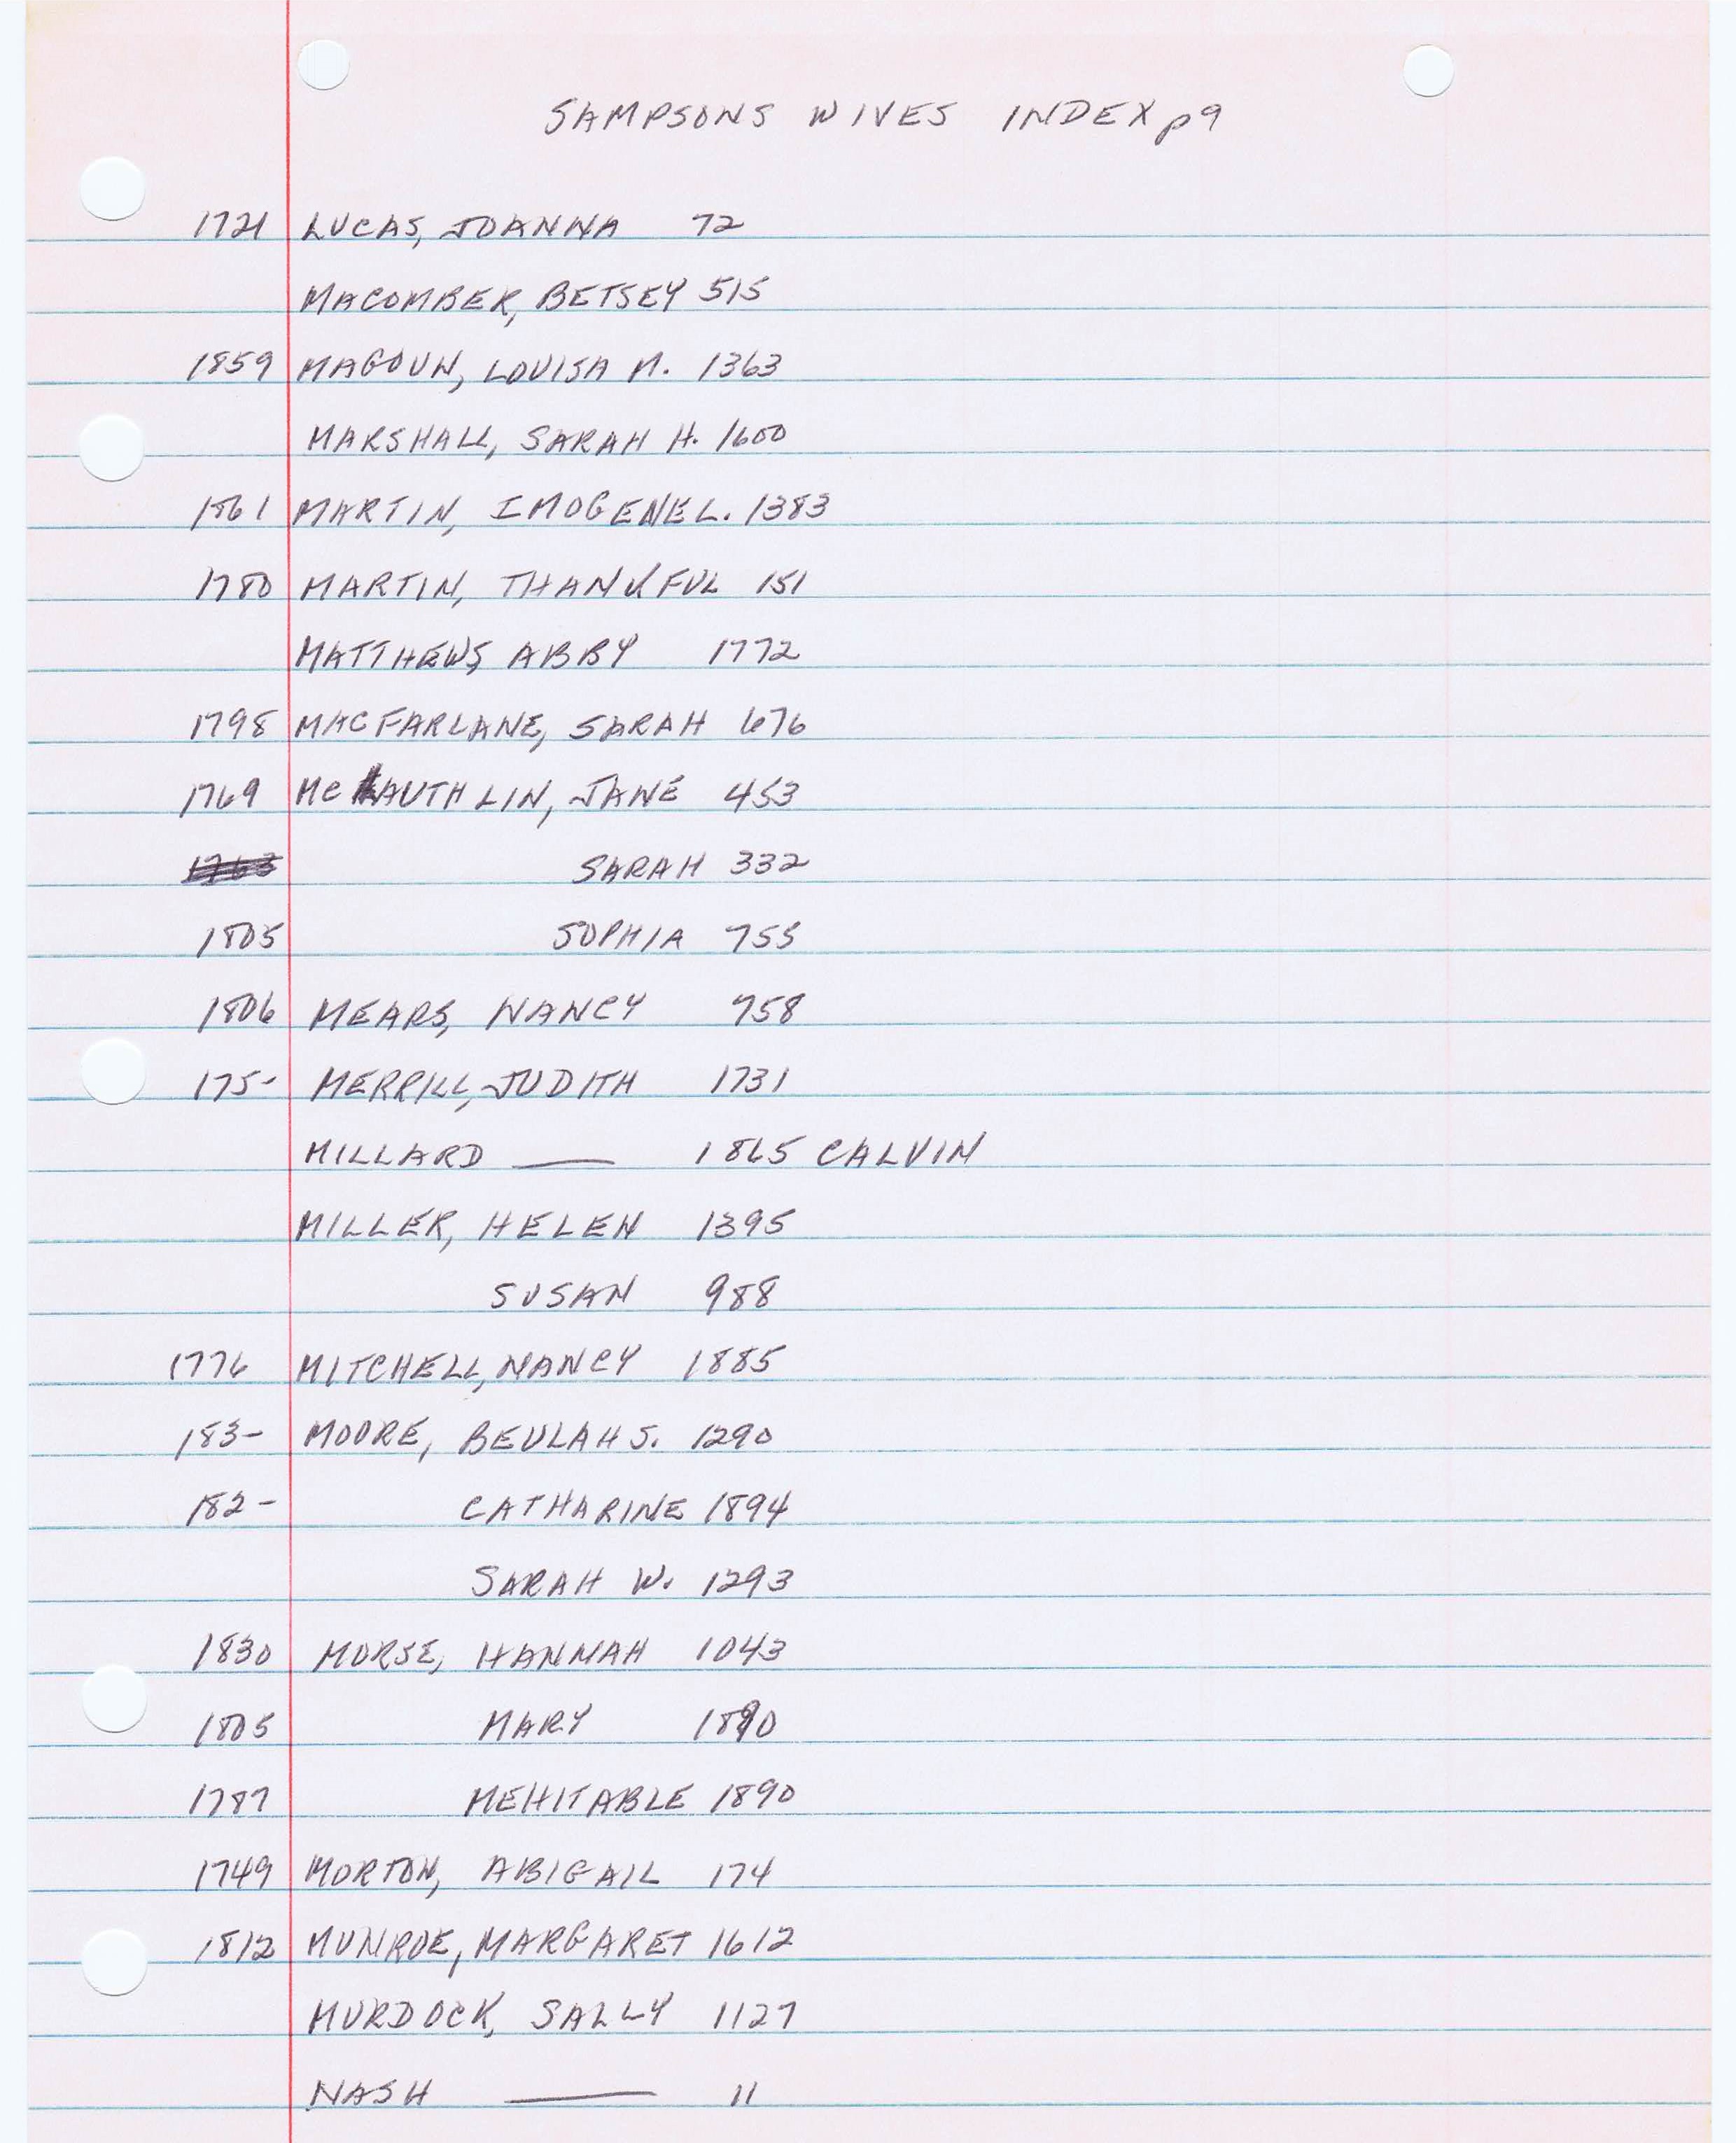 SAMPSONS WIVES INDEX p9
1721 LUCAS, JOANNA 72
MACOMBER, BETSEY 515
1859 MAGOUN, LOUISA M. 1363
MARSHALL, SARAH H. 1600
1861 MARTIN, IMOGENE L. 1383
1780 MARTIN, THANKFUL 151
MATTHEWS, ABBY 1772
1798 MACFARLANE, SARAH 676
1769 McLAUTHLIN, JANE 453
1763 SARAH 332
1805 SOPHIA 755
1806 MEARS, NANCY 758
175- MERRILL, JUDITH 1731
MILLARD —— 1865 CALVIN
MILLER, HELEN 1395
SUSAN 988
1776 MITCHELL, NANCY 1885
183- MOORE, BEULAH S. 1290
182- CATHARINE 1894
SARAH W. 1293
1830 MORSE, HANNAH 1043
1805 MARY 1890
1787 MEHITABLE 1890
1749 MORTON, ABIGAIL 174
1812 MUNROE, MARGARET 1612
MURDOCK, SALLY 1127
NASH —— 11